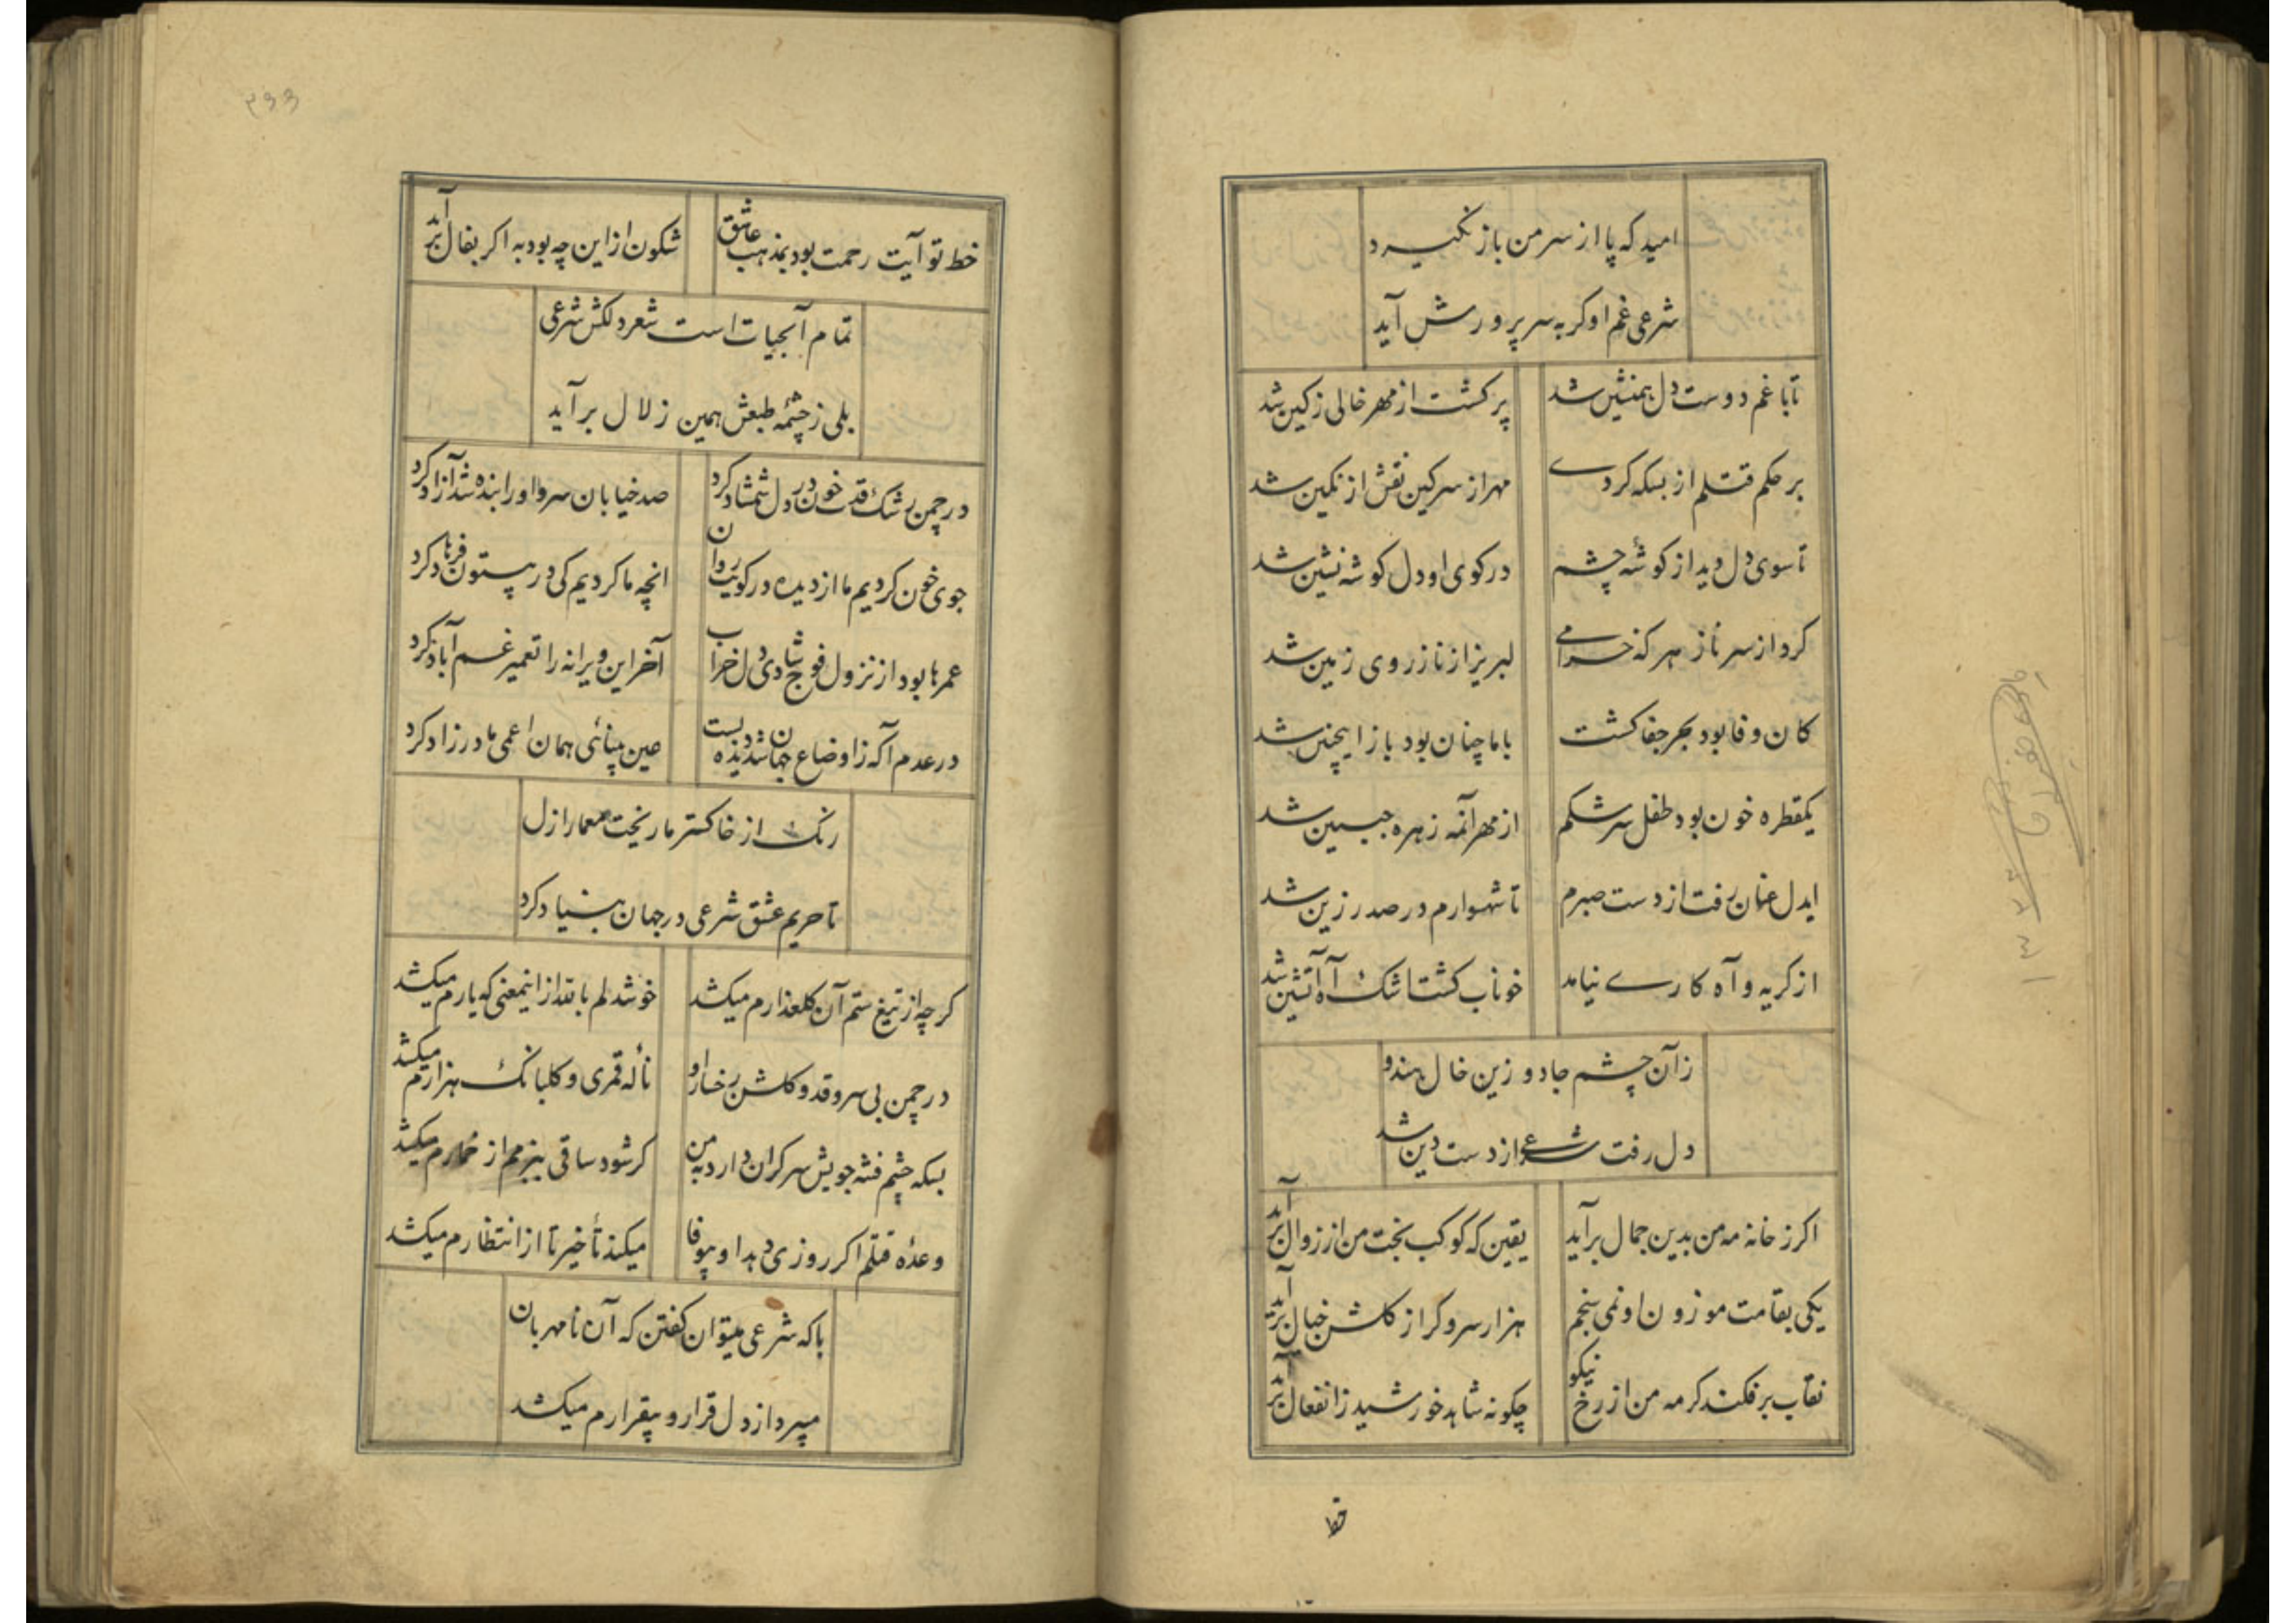 امید که پا از سر من باز نگیرد
شرعی غم او گر به سر پرورش آید
تا با غم دوست دل همنشین شد پر کشت از مهر خالی ز کین شد
بر حکم قتلم از بسکه کردی مهر از سر کین نقش از نگین شد
تا سوی دل دید از کوشهٔ چشم در کوی او دل کوشه نشین شد
کرد از سر ناز هر که خرامی لبریز از ناز روی زمین شد
کان وفا بود بحر جفا کشت با ما چنان بود باز اینچنین شد
یکقطره خون بود طفل سرشکم از مهر آنمه زهره جبین شد
ایدل عنان رفت از دست صبرم تا شهسوارم در صدر زین شد
از کریه و آه کاری نیامد خوناب کشت اشک آه آتشین شد
زآن چشم جادو زین خال هندو
دل رفت شرعی از دست دین شد
اکر ز خانه مه من بدین جمال برآید یقین که کوکب بخت من از زوال برآید
یکی بقامت موزون او نمی سنجم هزار سرو کر از کلشن خیال برآید
نقاب برفکند کر مه من از رخ نیکو چکونه شاهد خورشید ز انفعال برآید
خط
۳۶۶
خط تو آیت رحمت بود بمذهب عاشق شکون از این چه بود به اکر بفال برآید
تمام آبحیات است شعر دلکش شرعی
بلی ز چشمهٔ طبعش همین زلال برآید
در چمن رشک قدت خون در دل شمشاد کرد صد خیابان سرو او را بنده شد آزاد کرد
جوی خون کردیم ما از دیده در کویت روان انچه ما کردیم کی در بیستون فرهاد کرد
عمرها بود از نزول فوج شادی دل خراب آخر این ویرانه را تعمیر غم آباد کرد
در عدم آکه ز اوضاع جهان شد دیده بست عین بینائی همان اعمی مادرزاد کرد
رنک از خاکستر ما ریخت معمار ازل
تا حریم عشق شرعی در جهان بنیاد کرد
کرچه از تیغ ستم آن کلعذارم میکشد خوشدلم با نقد از اینمعنی که یارم میکشد
در چمن بی سرو قد و کلشن رخسار او نالهٔ قمری و کلبانک هزارم میکشد
بسکه چشم فتنه جویش سر کران دارد به من کر شود ساقی ببزمم از خمارم میکشد
وعدهٔ قتلم اکر روزی دهد او بیوفا میکند تأخیر تا از انتظارم میکشد
با که شرعی میتوان کفتن که آن نامهربان
میبرد از دل قرار و بیقرارم میکشد